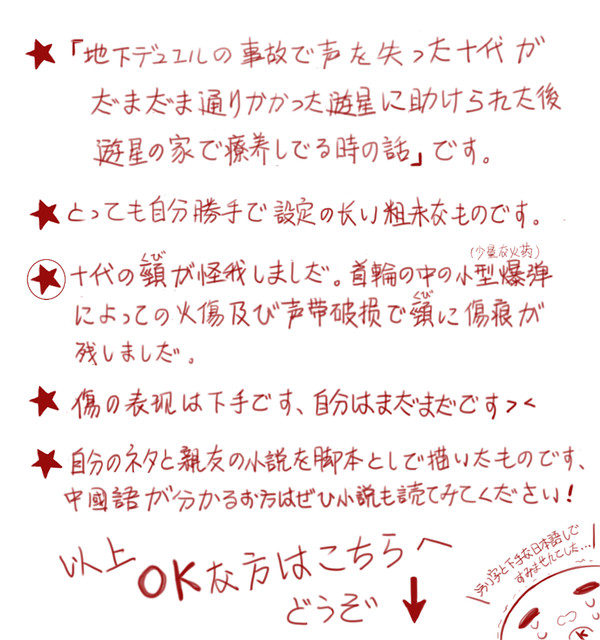 ★「地下デュエルの事故で声を失った十代が
だまだま通りかかった遊星に助けられた後
遊星の家で療养しでる時の話」です。
★とっても自分勝手で設定の長い粗末なものです。
★十代の頸が怪我しましだ。首輪の中の小型爆弾
くび
(少量な火药)
によっての火傷及び声带破损で頸に傷痕が
くび
残しましだ。
★傷の表现は下手です、自分はまだまだです><
★自分のネタと親友の小説を脚本としで描いたものです、
中國語が分かるお方はぜひ小説も読てみてください!
以上OKな方はこちらへ
どうぞ
↓
下手な日本語しで
すみませんでした...
K